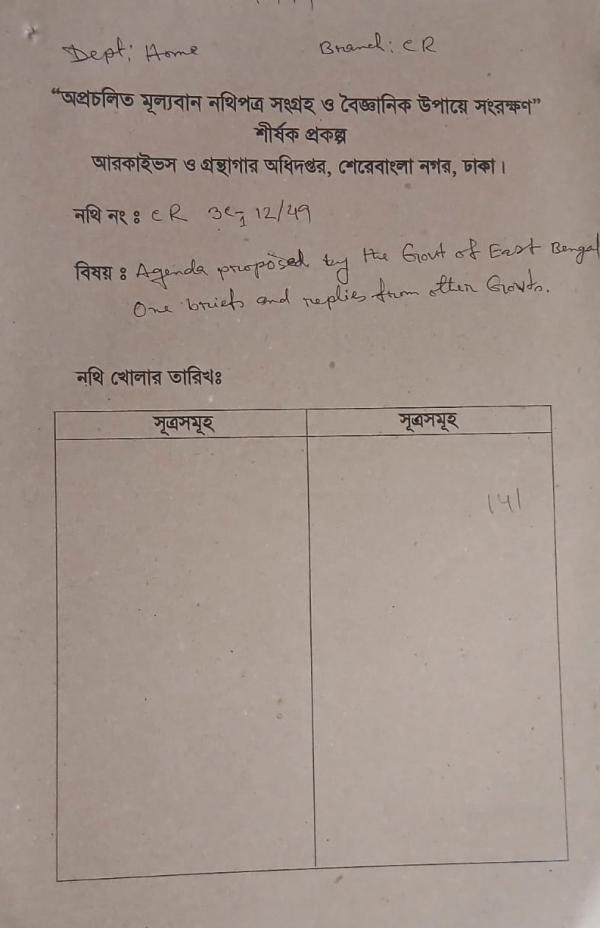 Dept: Home Branch: CR
"অপ্রচলিত মূল্যবান নথিপত্র সংগ্রহ ও বৈজ্ঞানিক উপায়ে সংরক্ষণ"
শীর্ষক প্রকল্প
আরকাইভস ও গ্রন্থাগার অধিদপ্তর, শেরেবাংলা নগর, ঢাকা।
নথি নং ঃ CR 12/49
বিষয় ঃ Agenda proposed by the Govt of East Bengal
One briefs and replies from other Govts.
নথি খোলার তারিখঃ
সূত্রসমূহ সূত্রসমূহ
141